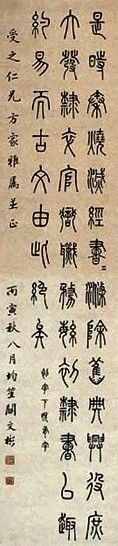 是時秦燒滅經書滌除舊典興役
大發隸卒官獄職務緐初隸書以趣
約易而古文由此絕矣
初字下脫有字
受之仁兄方家雅屬並正
丙寅秋八月均笙關文彬